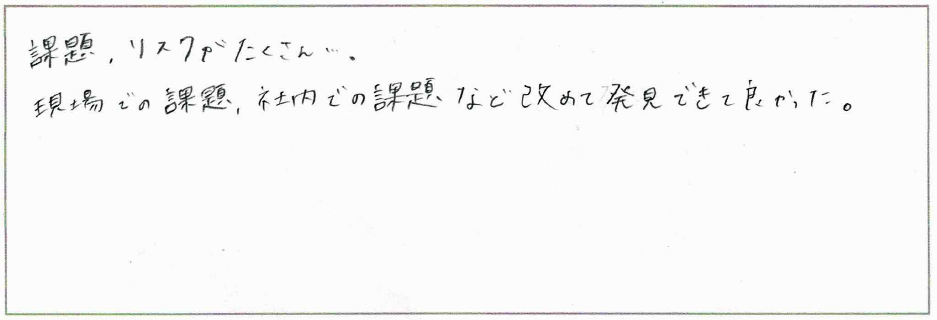 課題，リスクがたくさん…。
現場での課題，社内での課題など改めて発見できて良かった。